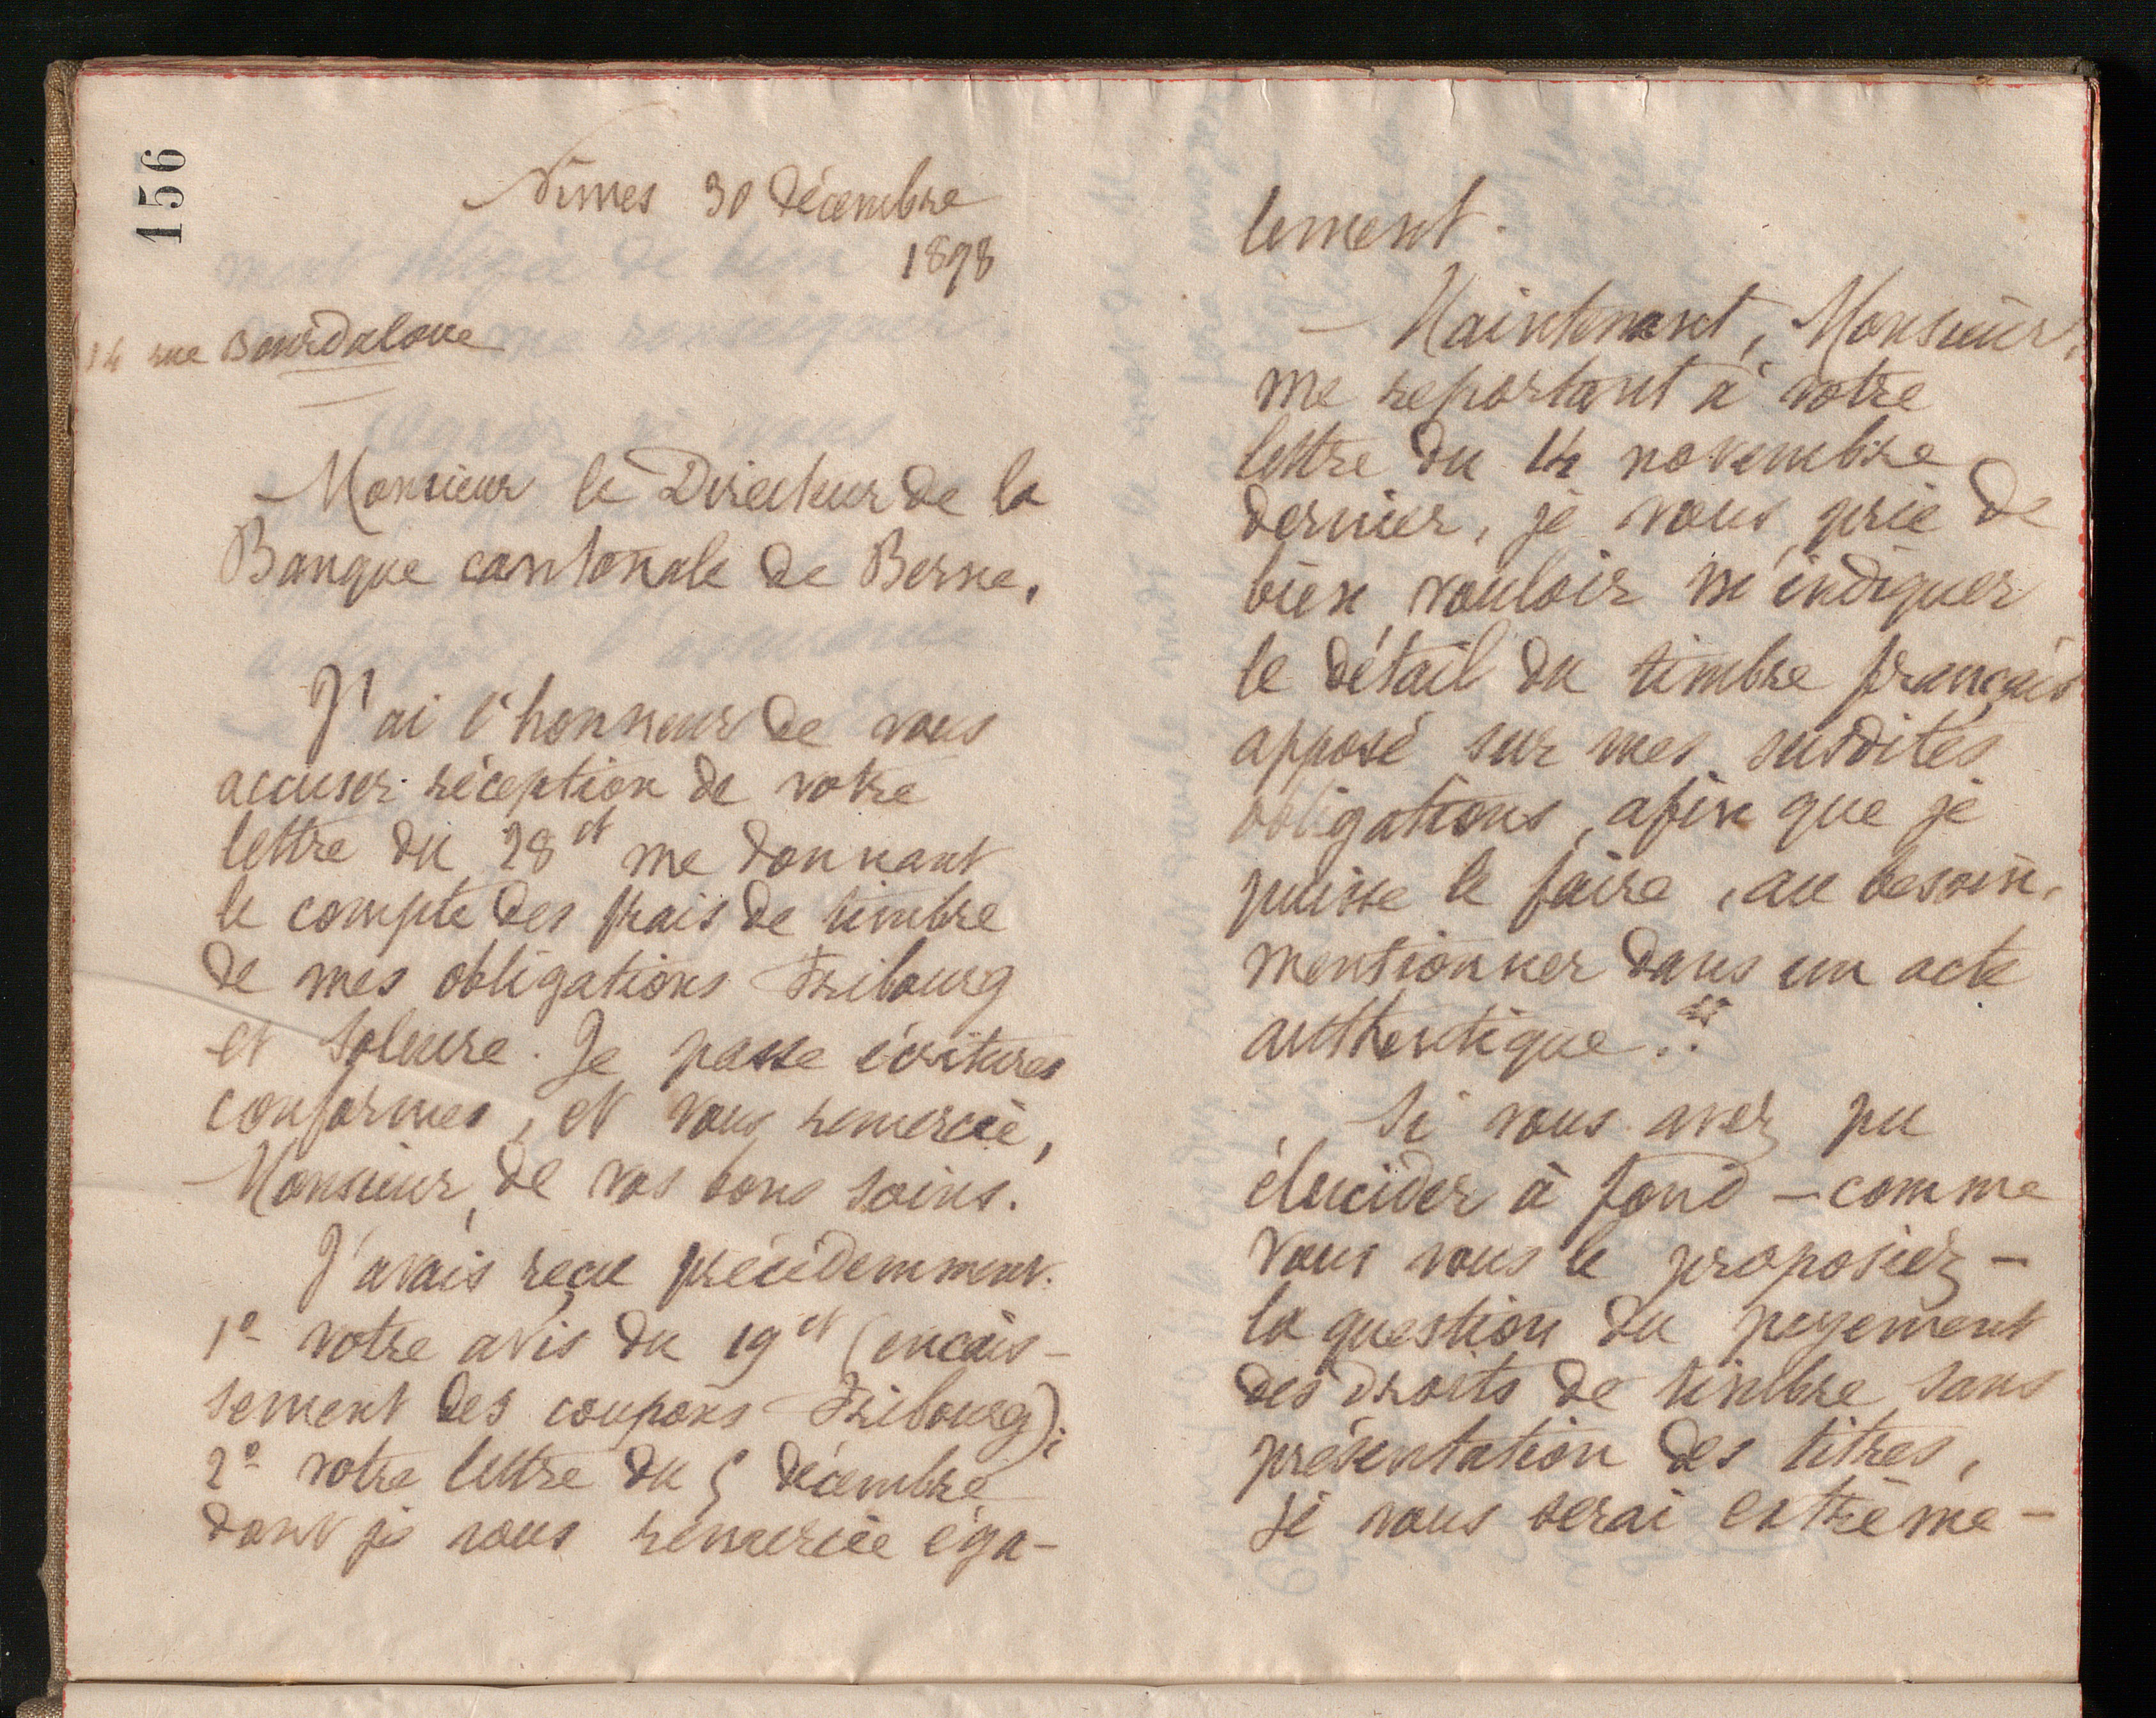 156
Nîmes 30 décembre
1898
14 rue Bourdaloue
Monsieur le Directeur de la
Banque cantonale de Berne,
J'ai l'honneur de vous
accuser réception de votre
lettre du 28 ct me donnant
le compte des frais de timbre
de mes obligations Fribourg
et Soleure. Je passe écritures
conformes, et vous remercie,
Monsieur, de vos bons soins.
J'avais reçu précédemment.
1º votre avis du 19 ct (encais-
sement des coupons Fribourg);
2º votre lettre du 5 décembre
dont je vous remercie éga-
lement.
Maintenant, Monsieur,
me reportant à votre
lettre du 14 novembre
dernier, je vous prie de
bien vouloir m'indiquer
le détail du timbre français
apposé sur mes susdites
obligations, afin que je
puisse le faire, au besoin,
mentionner dans un acte
authentique.
Si vous avez pu
élucider à fond – comme
vous vous le proposiez –
la question du payement
des droits de timbre sans
présentation des titres,
je vous serai extrême-